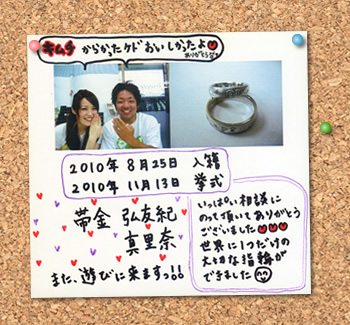 キムチ からかたケドおいしかったよ
ありがとうござ
2010年 8月25日 入籍
2010年 11月13日 挙式
帯金 弘友紀
真里奈
また、遊びに来ますっ!!
いっぱい相談に
のって頂いてありがとう
ございました
世界に1つだけの
大切な指輪が
できました